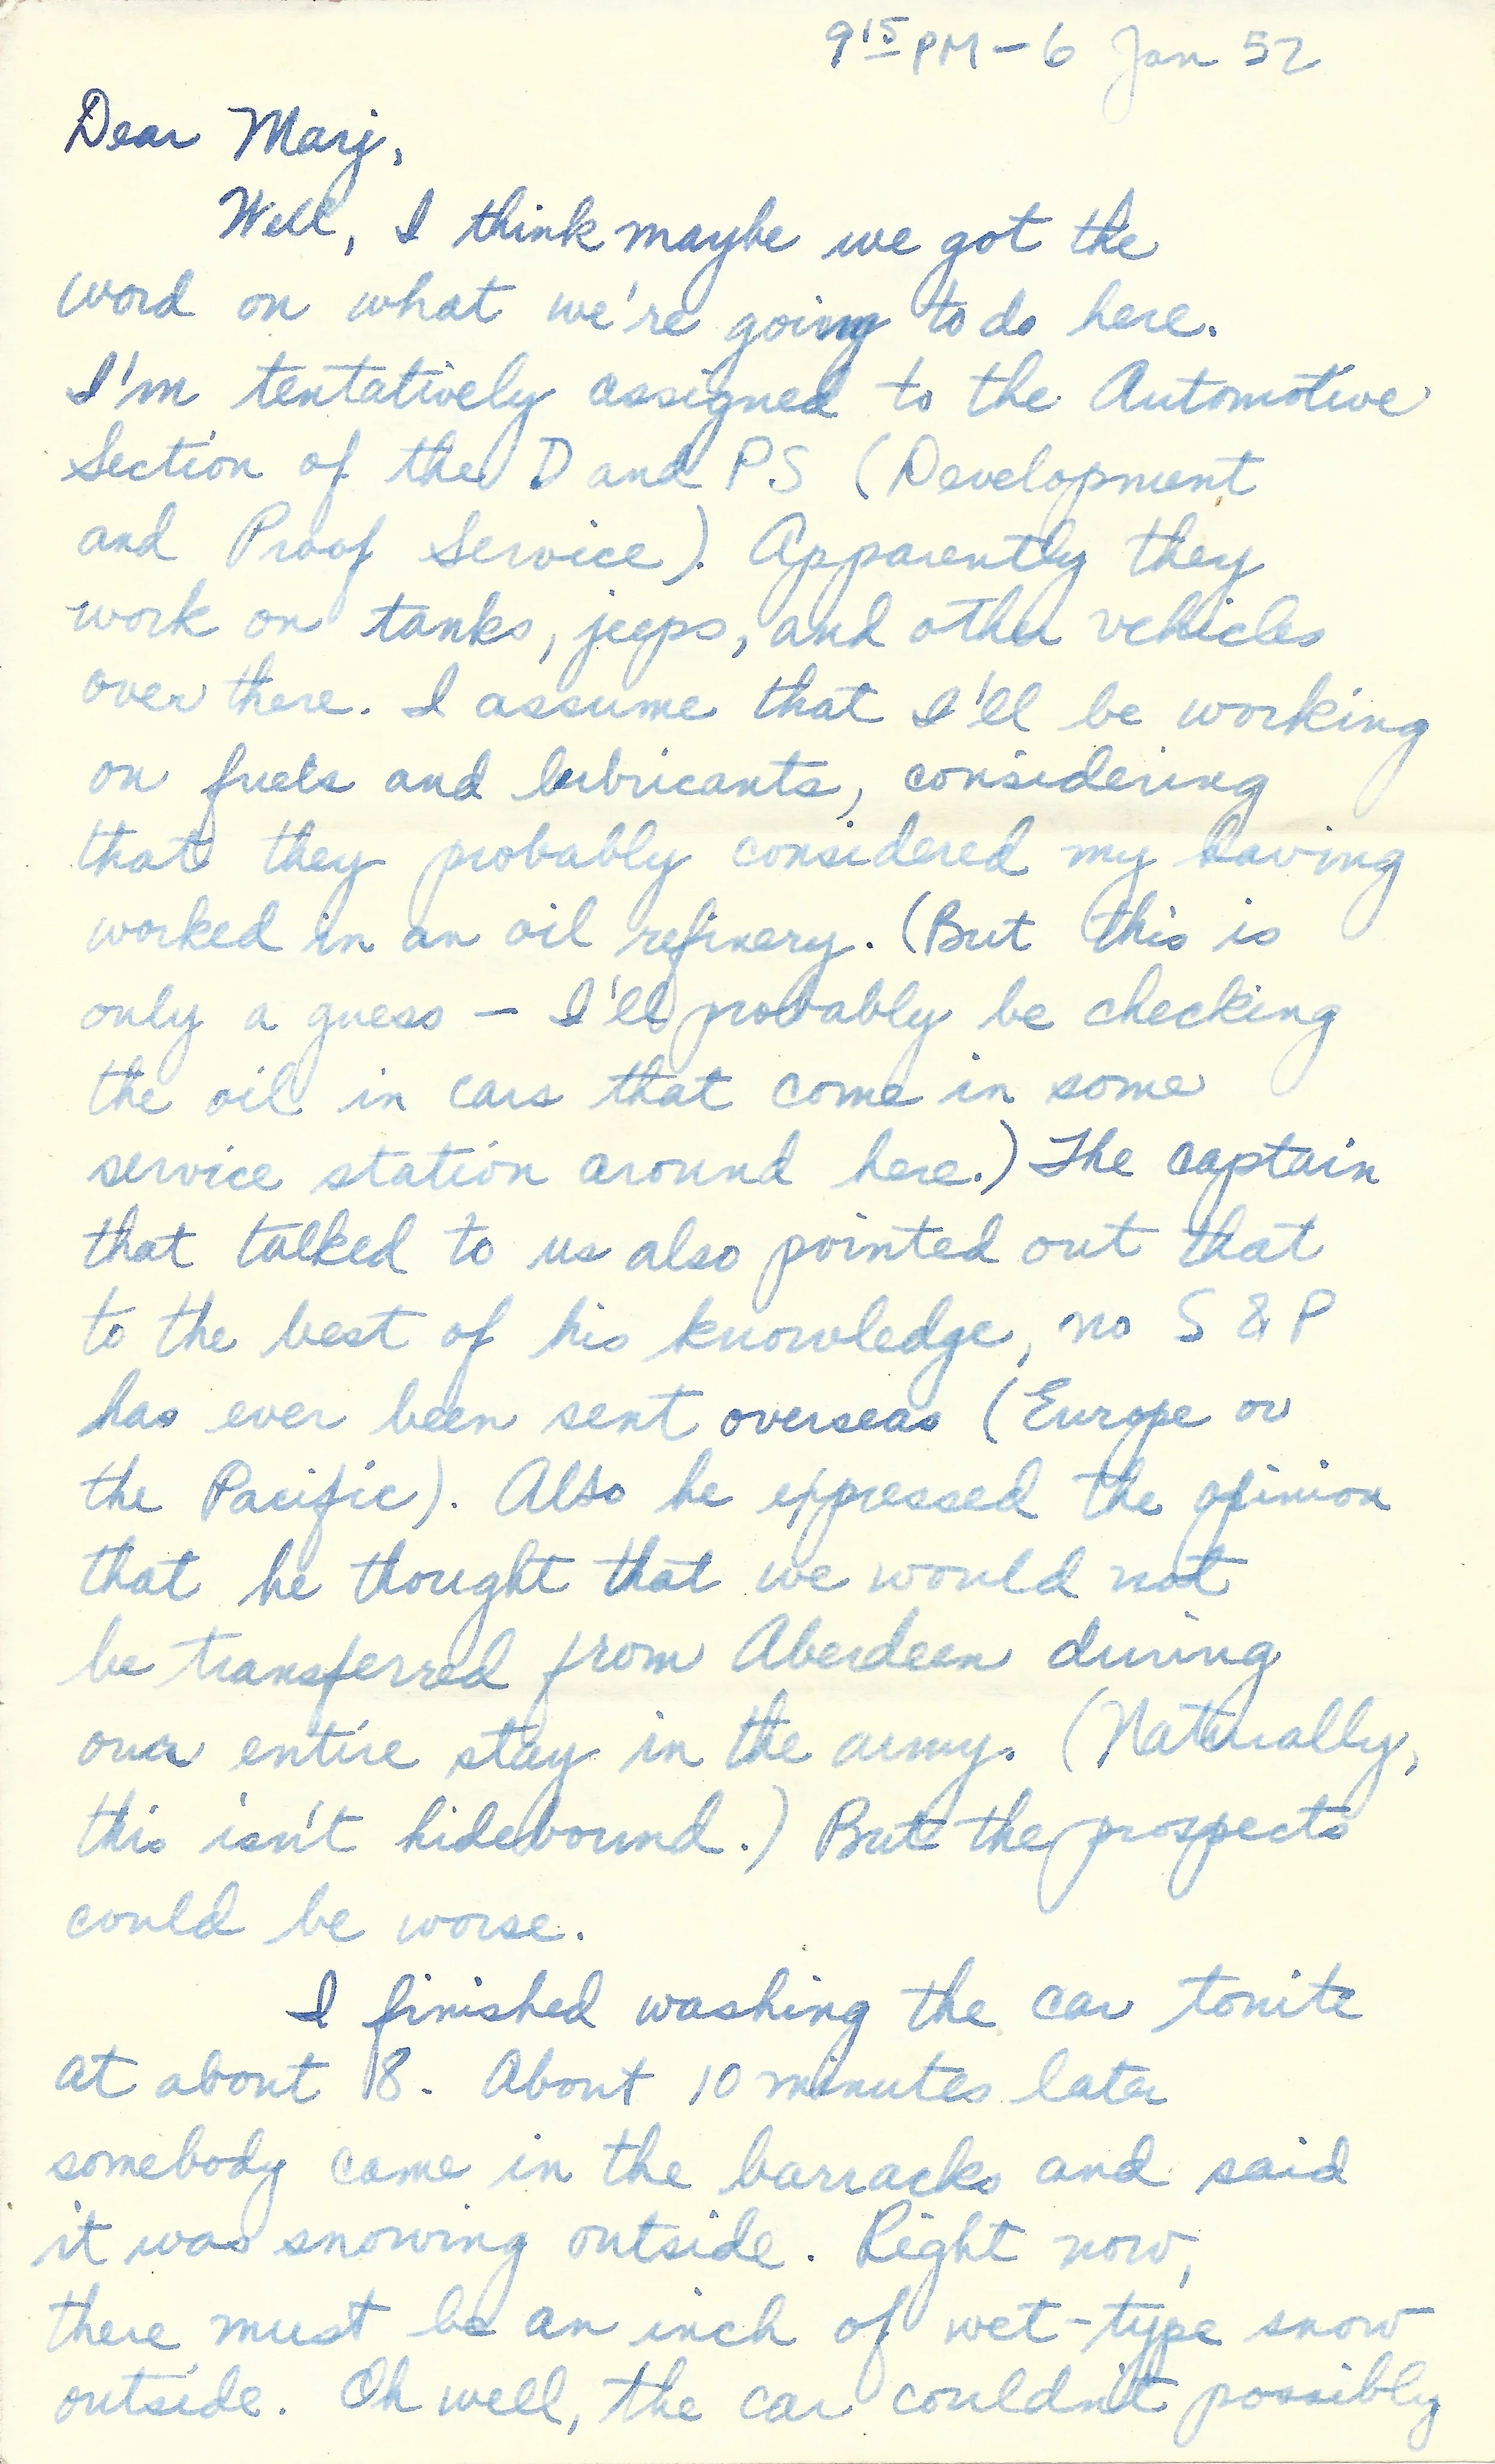 9 15 PM - 6 Jan 52
Dear Marj,
Well, I think maybe we got the
word on what we're going to do here.
I'm tentatively assigned to the Automotive
Section of the D and PS (Development
and Proof Service). Apparently they
work on tanks, jeeps, and other vehicles
over there. I assume that I'll be working
on fuels and lubricants, considering
that they probably considered my having
worked in an oil refinery. (But this is
only a guess – I'll probably be checking
the oil in cars that come in some
service station around here.) The captain
that talked to us also pointed out that
to the best of his knowledge, no S & P
has ever been sent overseas (Europe or
the Pacific). Also he expressed the opinion
that he thought that we would not
be transferred from Aberdeen during
our entire stay in the army. (Naturally,
this isn't hidebound.) But the prospects
could be worse.
I finished washing the car tonite
at about 8. About 10 minutes later
somebody came in the barracks and said
it was snowing outside. Right now,
there must be an inch of wet-type snow
outside. Oh well, the car couldn't possibly